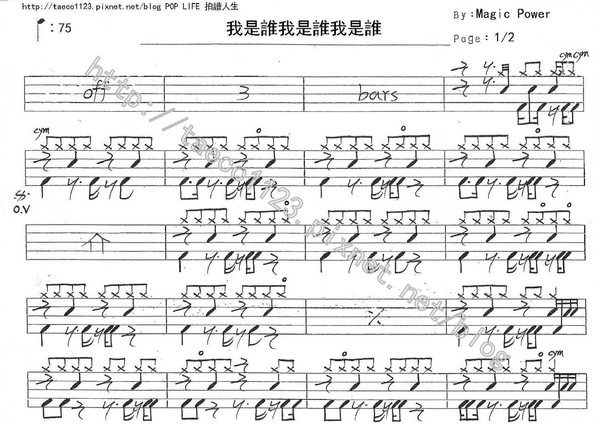 http://taeco1123.pixnet.net/blog POP LIFE 拍譜人生
:75
我是誰我是誰我是誰
By:Magic Power
Page: 1/2
cym cym
off 3 bars
cym
O.V
cym
http://taeco1123.pixnet.net/blog